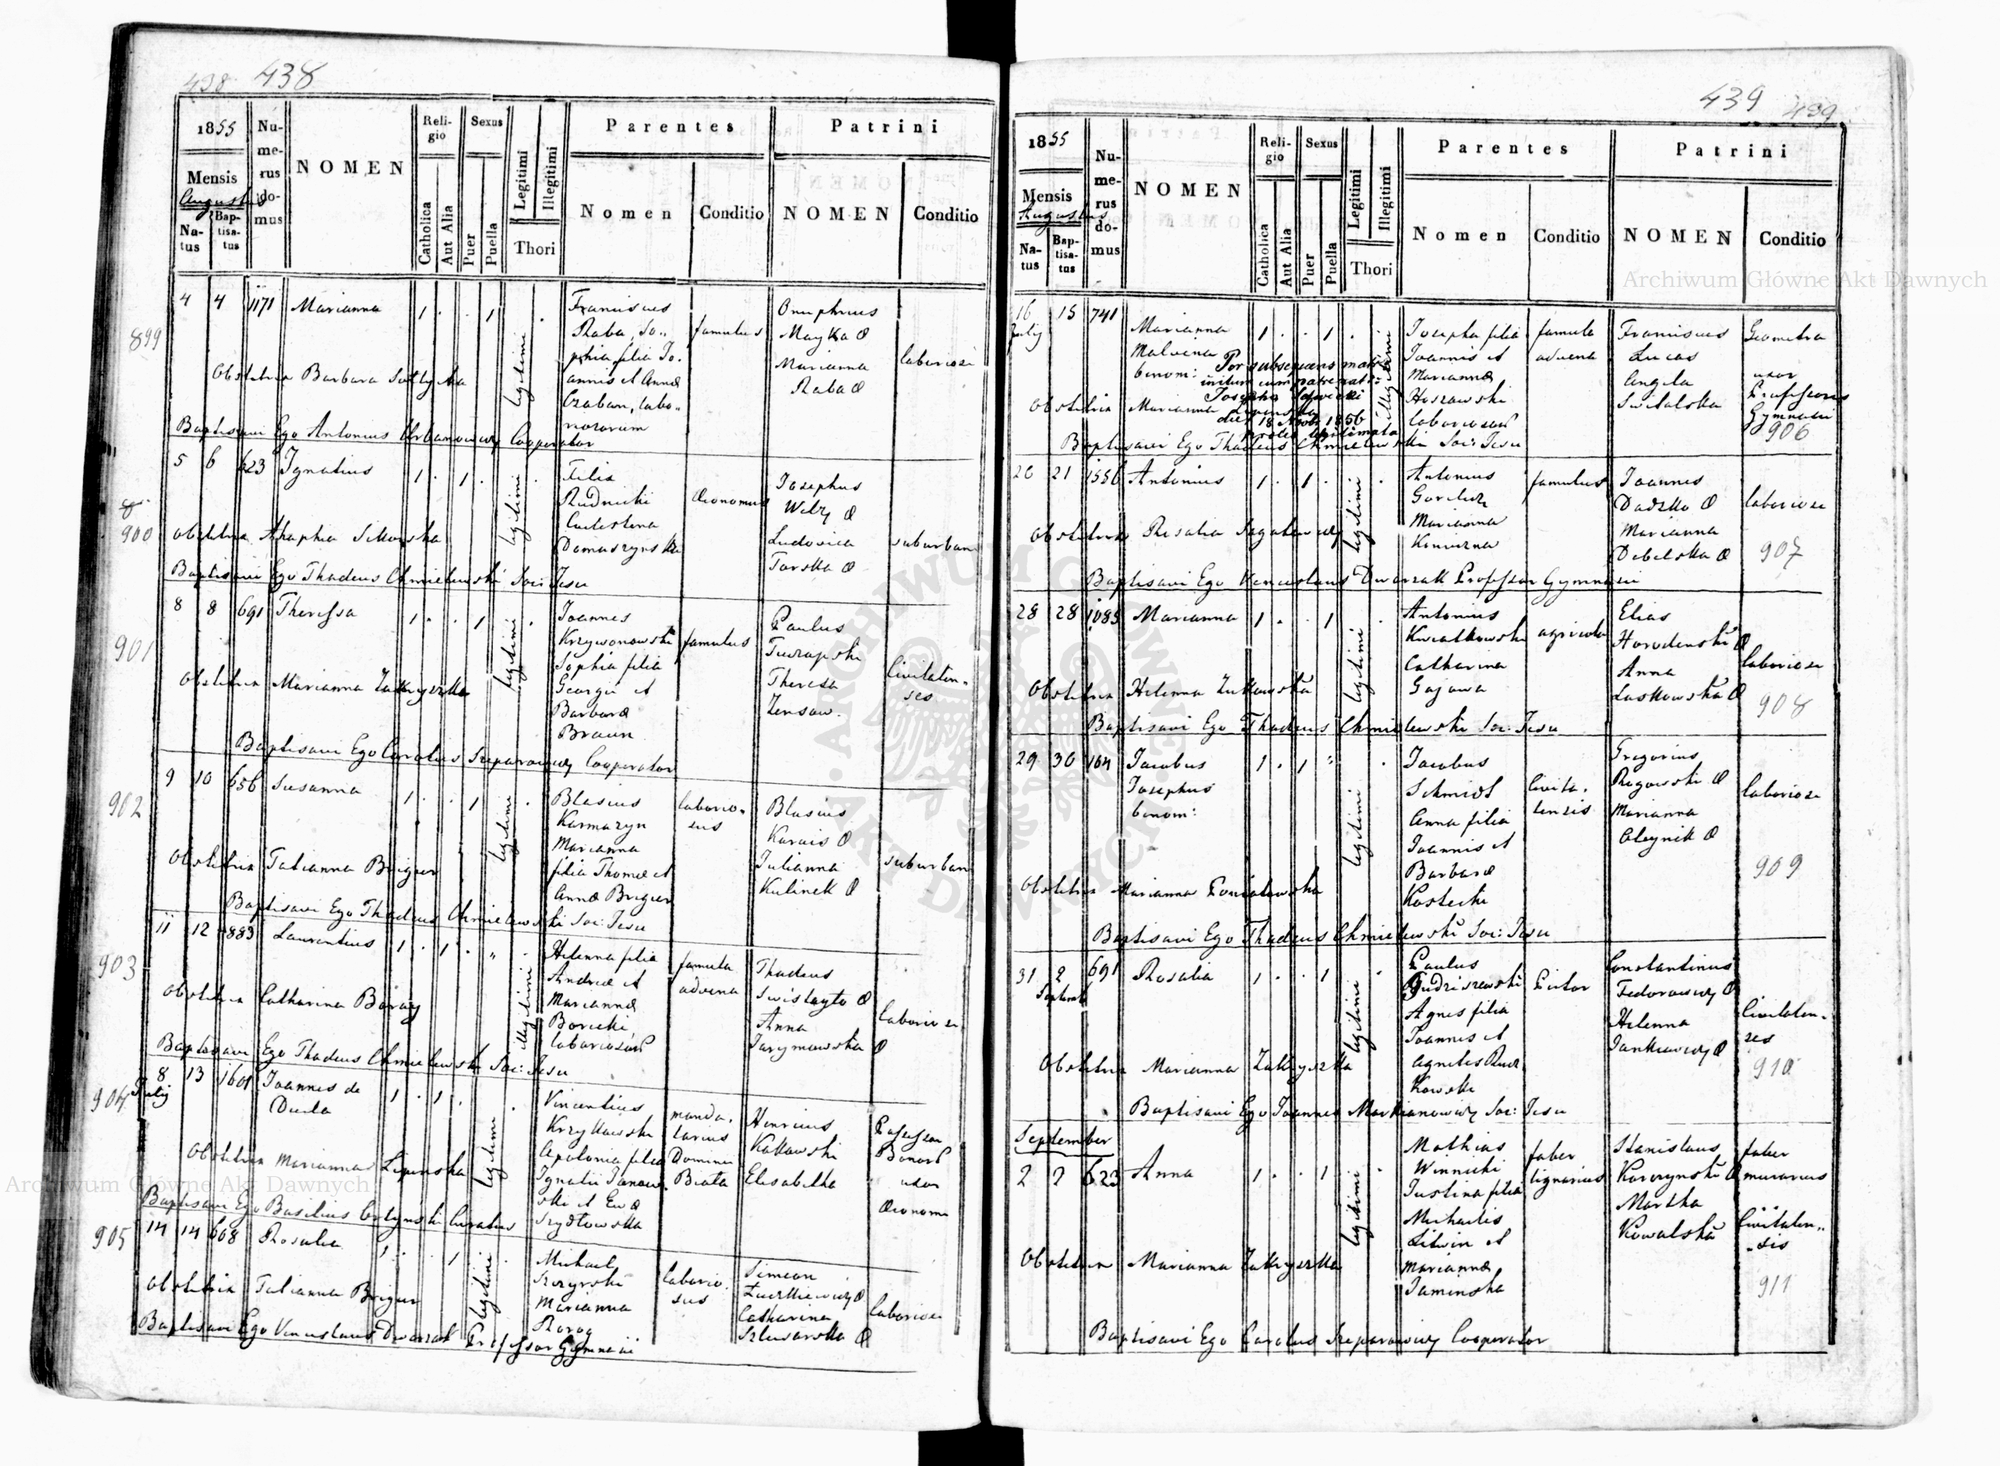 438 438
1855
Mensis
Augustus
Natus
Baptisatus
Numerus domus
NOMEN
Religio
Catholica
Aut Alia
Sexus
Puer
Puella
Legitimi
Illegitimi
Thori
Parentes
Nomen
Conditio
Patrini
NOMEN
Conditio
899
4 4 1171 Marianna 1 . . 1 legitimi .
Franciscus
Raba, So-
phia filia Jo-
annis et Annae
Czaban, labo-
riosorum
famulus
Onuphrius
Mayka &
Marianna
Raba &
laboriosi
Obstetrix Barbara
Baptisavi Ego Antonius Urbanowicz Cooperator
900
5 6 623 Ignatius 1 . 1 . legitimi .
Felix
Rudnicki
Caelestena
Domaszynska
Oeconomus
Josephus
&
Ludovica
Torska &
suburban
Obstetrix Ahaphia
Baptisavi Ego Thadeus Chmielewski Soc: Jesu
901
8 8 691 Theressa 1 . . 1 legitimi .
Joannes
Krzywonowski
Sophia filia
Georgii et
Barbarae
Braun
famulus
Paulus
Theresa
Civitaten-
ses
Obstetrix Marianna Zakrzyszka
Baptisavi Ego Carolus Szeparowicz Cooperator
902
9 10 656 Susanna 1 . . 1 legitimi
Blasius
Karmazyn
Marianna
filia Thomae et
Annae Brygier
laborio-
sus
Blasius
Karais &
Julianna
Kulinek &
suburban
Obstetrix Tatianna Brygier
Baptisavi Ego Thadeus Chmielewski Soc: Jesu
903
11 12 883 Laurentius 1 . 1 . " illegitimi
Helenna filia
Andreae et
Mariannae
Borecki,
laboriosor
famula
advena
Thadeus
&
Anna
Jarymowska &
laboriosi
Obstetrix Catharina
Baptisavi Ego Thadeus Chmielewski Soc: Jesu
904
8 July 13 1601 Joannes de
Duela 1 . 1 . legitimi .
Vincentius
Krzyk
Apolonia filia
Ignatii Janow-
ski et Evae
Szydlowska
manda-
tarius
Dominii
Biala
Henricus
Kaklowski
Elisabetha
Possessor
Bonor
uxor
Oeconomi
Obstetrix Marianna Lipinska
Baptisavi Ego Basilius Curatus
905
14 14 668 Rosalia 1 . . 1 legitimi .
Michael
Szczyrski
Marianna
Rorog
laborio-
sus
Simeon
&
Catharina
Szlusarska &
laboriosi
Obstetrix Tatianna Brygier
Baptisavi Ego Venceslaus Dworzak Professor Gymnasii
439 439
1855
Mensis
Augustus
Natus
Baptisatus
Numerus domus
NOMEN
Religio
Catholica
Aut Alia
Sexus
Puer
Puella
Legitimi
Illegitimi
Thori
Parentes
Nomen
Conditio
Patrini
NOMEN
Conditio
16 July 15 741 Marianna
Malvina
binom: 1 . . 1 . illegitimi
Per subsequens matr:
initum cum patre nat:
Josepho
die 18 1856
proles legitimata
Josepha filia
Joannis et
Mariannae
Hoszowski
laboriosor
famula
advena
Franciscus
Lucas
Angela
Switalska
Geometra
uxor
Professoris
Gymnasii
906
Obstetrix Marianna Lipinska
Baptisavi Ego Thadeus Chmielewski Soc: Jesu
20 21 1556 Antonius 1 . 1 . legitimi .
Antonius
Marianna
famulus
Joannes
Dadzko &
Marianna
Debelska &
laboriosi
907
Obstetrix Rosalia
Baptisavi Ego Venceslaus Dworzak Professor Gymnasii
28 28 1085 Marianna 1 . . 1 legitimi .
Antonius
Kwiatkowski
Catharina
Gajowa
agricola
Elias
Horodenski &
Anna
Laskowska &
laboriosi
908
Obstetrix Helenna Zukowska
Baptisavi Ego Thadeus Chmielewski Soc: Jesu
29 30 164 Jacobus
Josephus
binom: 1 . 1 " legitimi .
Jacobus
Schmidt
Anna filia
Joannis et
Barbarae
Kostecki
Civita-
tensis
Gregorius
Rogowski &
Marianna
Oleynik &
laboriosi
909
Obstetrix Marianna Poniatowska
Baptisavi Ego Thadeus Chmielewski Soc: Jesu
31 2 Septemb 691 Rosalia 1 . . 1 legitimi .
Paulus
Agnes filia
Joannis et
Agnetis Rucz
kowski
Pictor
Constantinus
Fedorowicz &
Helenna
Jankiewicz &
Civitaten-
ses
910
Obstetrix Marianna Zakrzyszka
Baptisavi Ego Joannes Markianowicz Soc: Jesu
September
2 2 623 Anna 1 . . 1 legitimi .
Mathias
Winnicki
Justina filia
Michaelis
Litwin et
Mariannae
Jaminska
faber
lignarius
Stanislaus
Korczynski &
Martha
Kowalska
faber
murarius
Civitaten-
sis
911
Obstetrix Marianna Zakrzyszka
Baptisavi Ego Carolus Szeparowicz Cooperator
Archiwum Główne Akt Dawnych
Archiwum Główne Akt Dawnych
ARCHIWUM GŁÓWNE AKT DAWNYCH